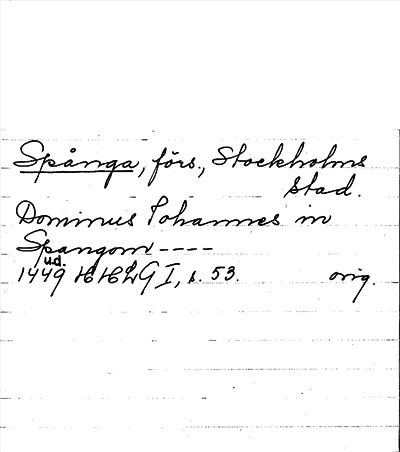 Spånga, förs., Stockholms
stad.
Dominus Johannes in
Spangom ----
u.d.
1449 HHLG I, s. 53. orig.